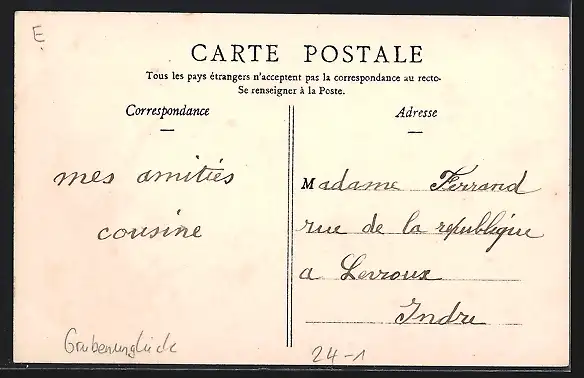 E
CARTE POSTALE
Tous les pays étrangers n'acceptent pas la correspondance au recto-
Se renseigner à la Poste.
Correspondance
Adresse
mes amitiés
cousine
Madame Ferrand
rue de la republique
a Levroux
Indre
Grubenunglück
24-1